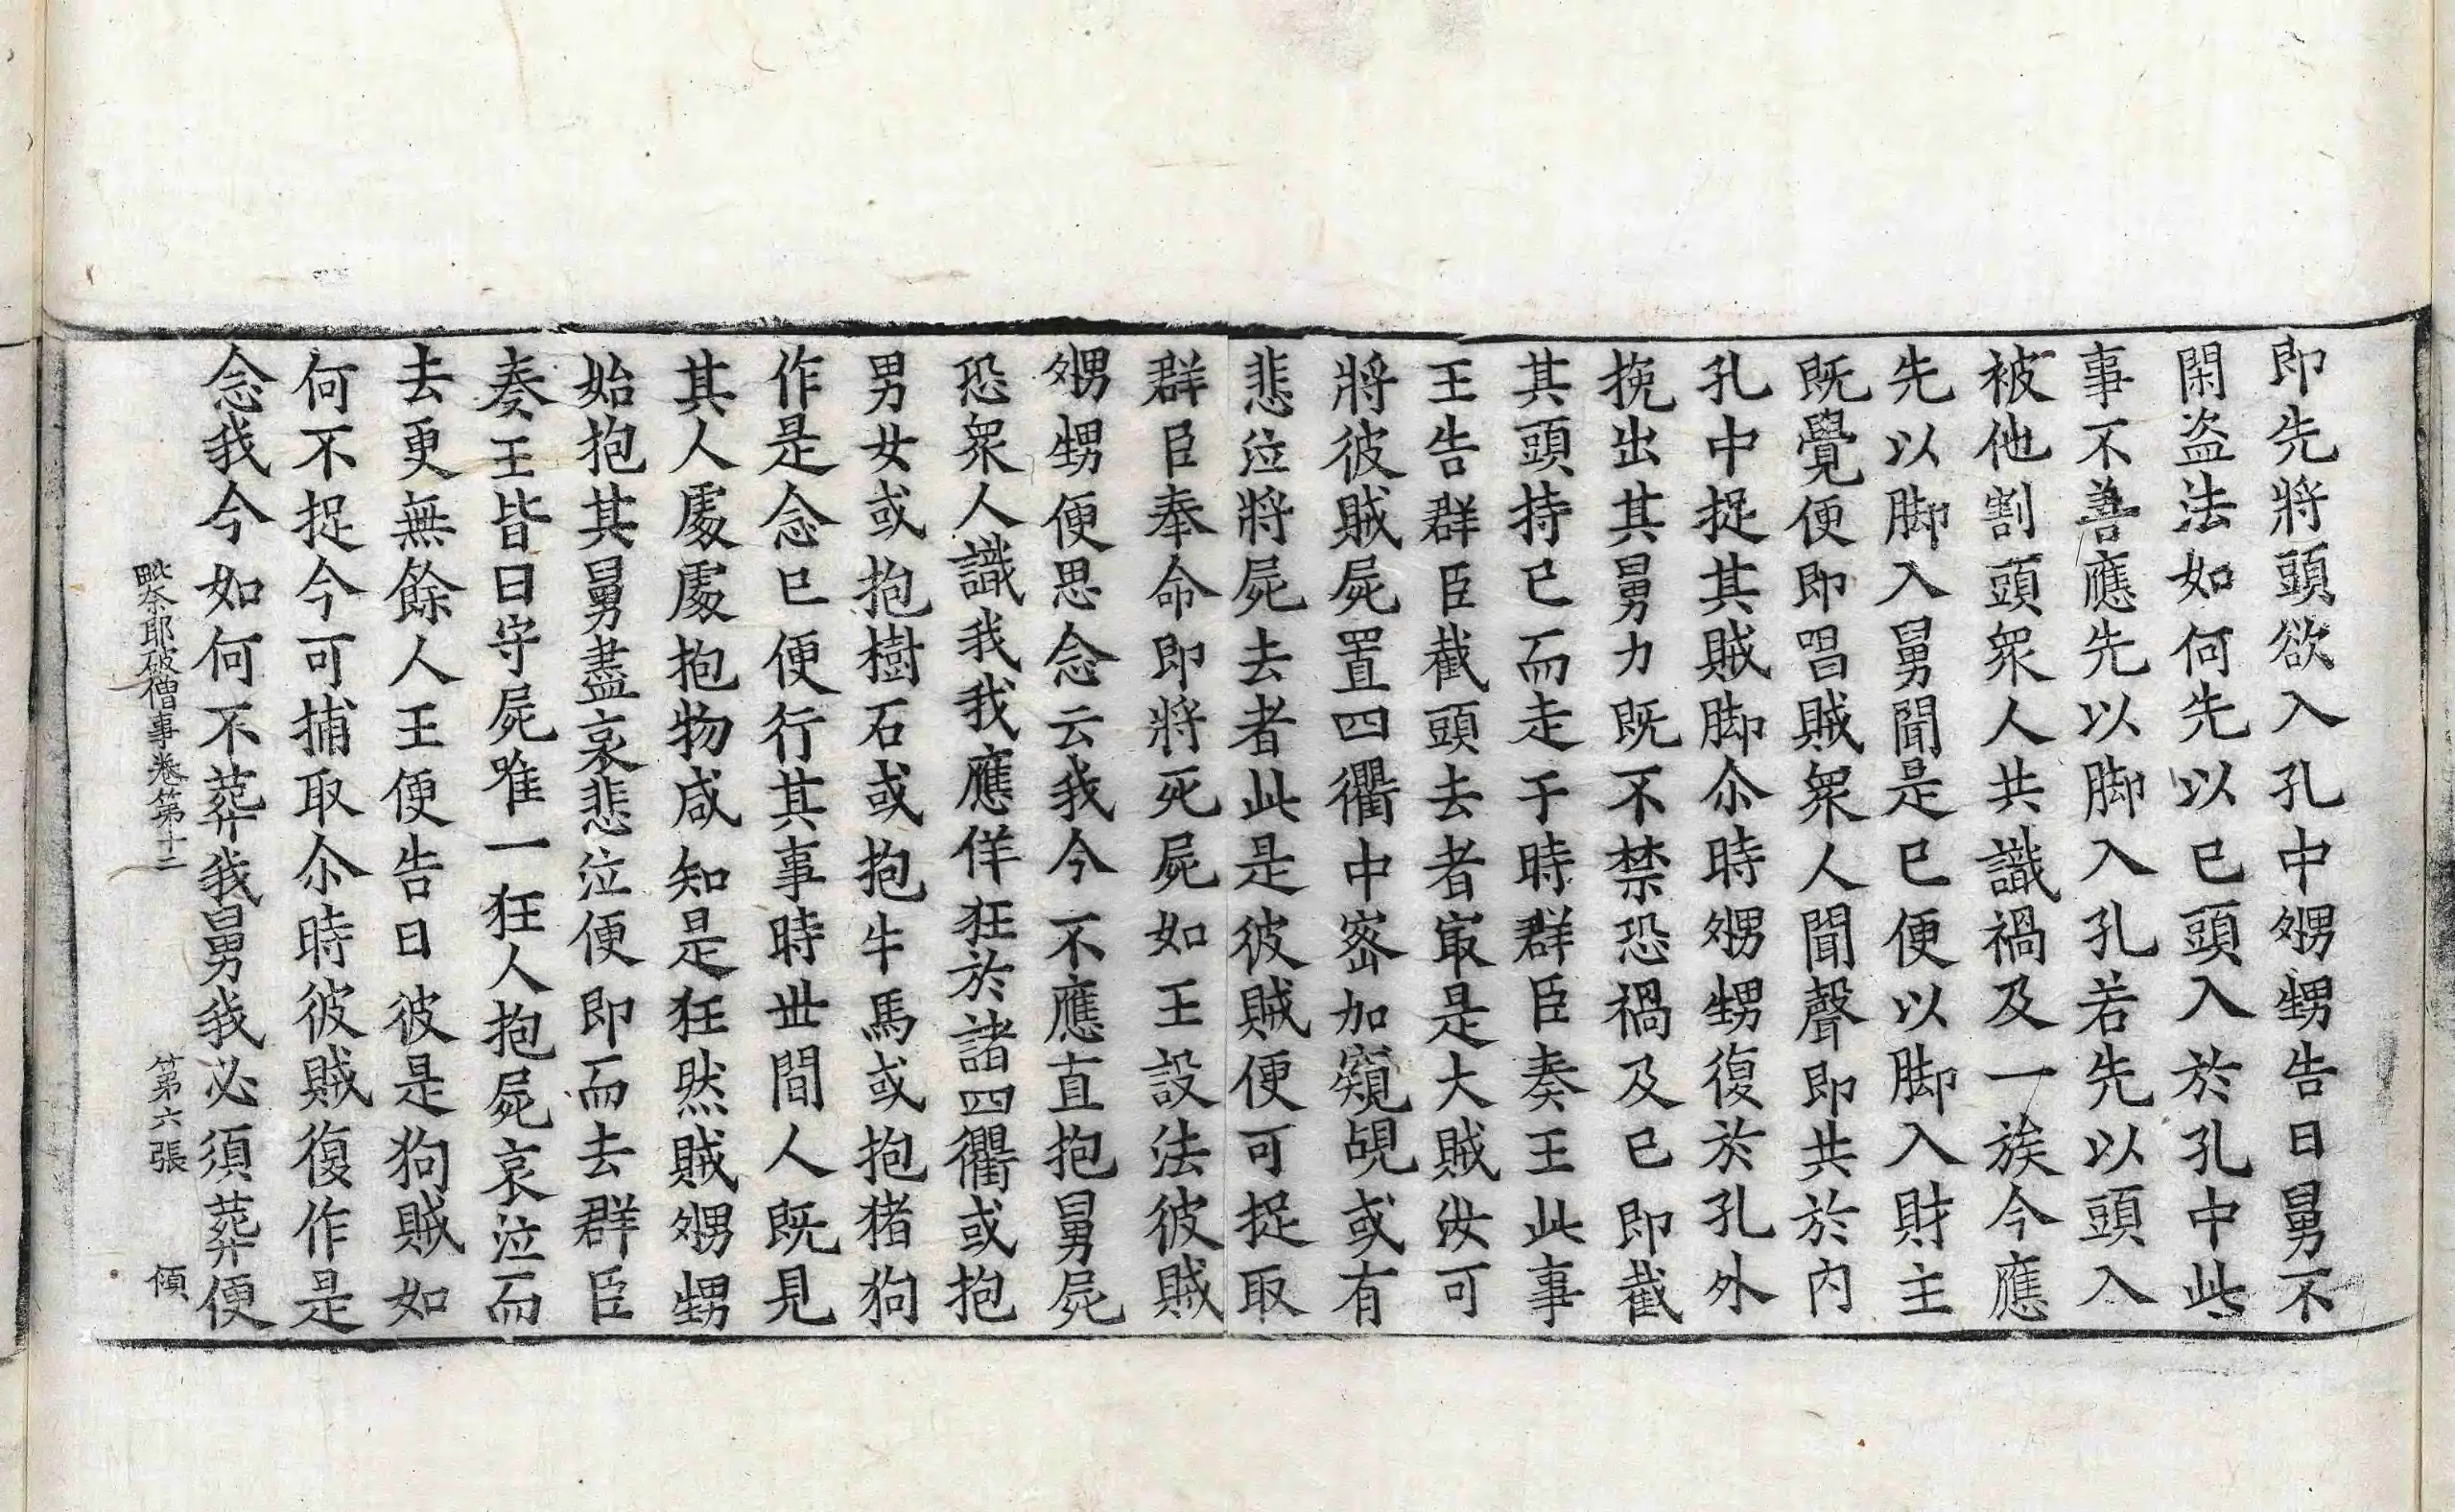 即先將頭欲入孔中甥甥告曰舅不
閑盗法如何先以已頭入於孔中此
事不善應先以脚入孔若先以頭入
被他割頭衆人共識禍及一族今應
先以脚入舅聞是已便以脚入財主
既覺便即唱賊衆人聞聲即共於内
孔中捉其賊脚尒時甥甥復於孔外
挽出其舅力既不禁恐禍及已即截
其頭持已而走于時群臣奏王此事
王告群臣截頭去者冣是大賊汝可
將彼賊屍置四衢中密加窺覘或有
悲泣將屍去者此是彼賊便可捉取
群臣奉命即將死屍如王設法彼賊
甥甥便思念云我今不應直抱舅屍
恐衆人識我我應佯狂於諸四衢或抱
男女或抱樹石或抱牛馬或抱猪狗
作是念已便行其事時世間人既見
其人處處抱物咸知是狂然賊甥甥
始抱其舅盡哀悲泣便即而去群臣
奏王皆曰守屍唯一狂人抱屍哀泣而
去更無餘人王便告曰彼是狗賊如
何不捉今可捕取尒時彼賊復作是
念我今如何不葬我舅我必須葬便
毗奈耶破僧事卷第十二 第六張 傾